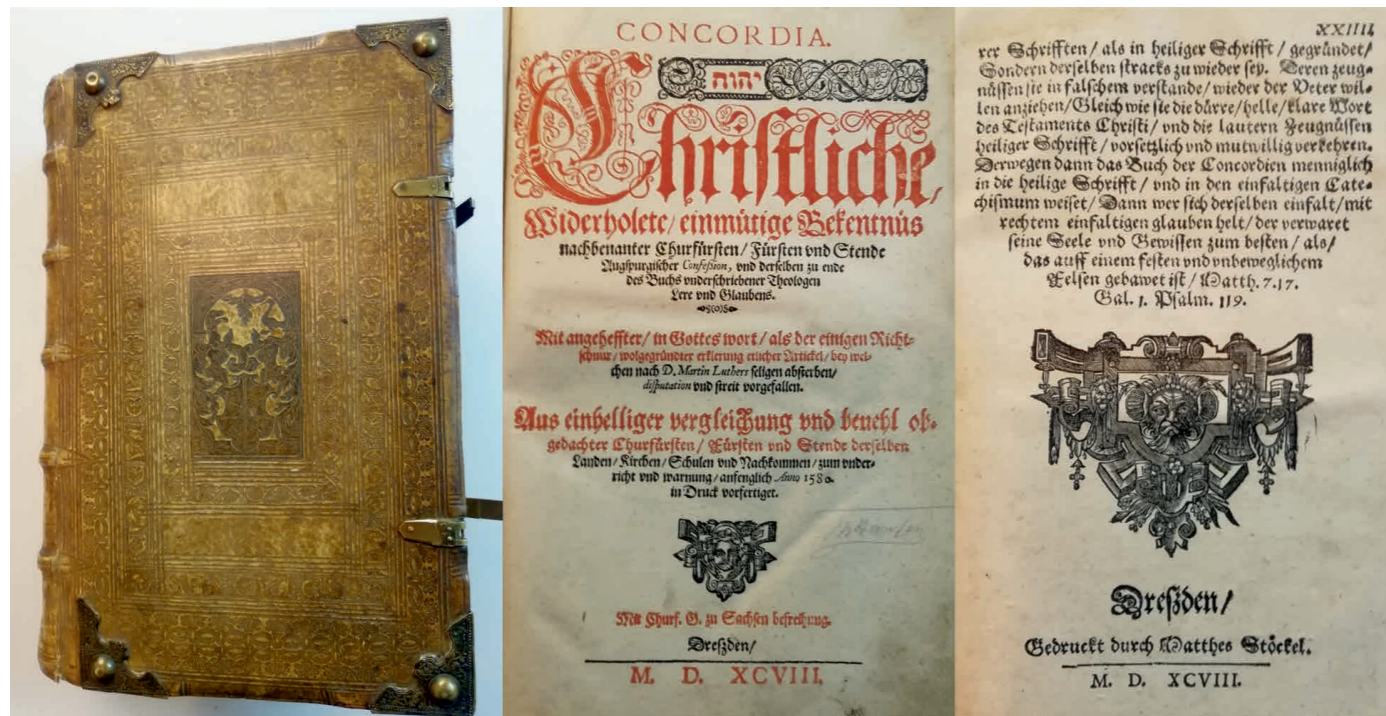 CONCORDIA.
יהוה
Christliche/
Widerholete/ einmütige Bekentnüs
nachbenanter Churfürsten/ Fürsten vnd Stende
Augspurgischer Confession, vnd derselben zu ende
des Buchs vnderschriebener Theologen
Lere vnd Glaubens.
Mit angeheffter/ in Gottes wort/ als der einigen Richt-
schnur/ wolgegründter erklerung etlicher Artickel/ bey wel-
chen nach D. Martin Luthers seligen absterben/
disputation vnd streit vorgefallen.
Aus einhelliger vergleichung vnd beuehl ob-
gedachter Churfürsten/ Fürsten vnd Stende derselben
Landen/ Kirchen/ Schulen vnd Nachkommen/ zum vnder-
richt vnd warnung/ anfenglich Anno 1580.
in Druck vorfertiget.
Mit Churf. G. zu Sachsen befreihung.
Dreßden/
M. D. XCVIII.
XXIIII.
rer Schrifften/ als in heiliger Schrifft/ gegründet/
Sondern derselben stracks zu wieder sey. Deren zeug-
nüssen sie in falschem verstande/ wieder der Veter wil-
len anziehen/ Gleich wie sie die dürre/ helle/ klare Wort
des Testaments Christi/ vnd die lautern Zeugnüssen
heiliger Schrifft/ vorsetzlich vnd mutwillig verkehren.
Derwegen dann das Buch der Concordien menniglich
in die heilige Schrifft/ vnd in den einfaltigen Cate-
chismum weiset/ Dann wer sich derselben einfalt/ mit
rechtem einfaltigen glauben helt/ der verwaret
seine Seele vnd Gewissen zum besten/ als/
das auff einem festen vnd vnbeweglichem
Felsen gebawet ist/ Matth. 7. 17.
Gal. 1. Psalm. 119.
Dreßden/
Gedruckt durch Matthes Stöckel.
M. D. XCVIII.